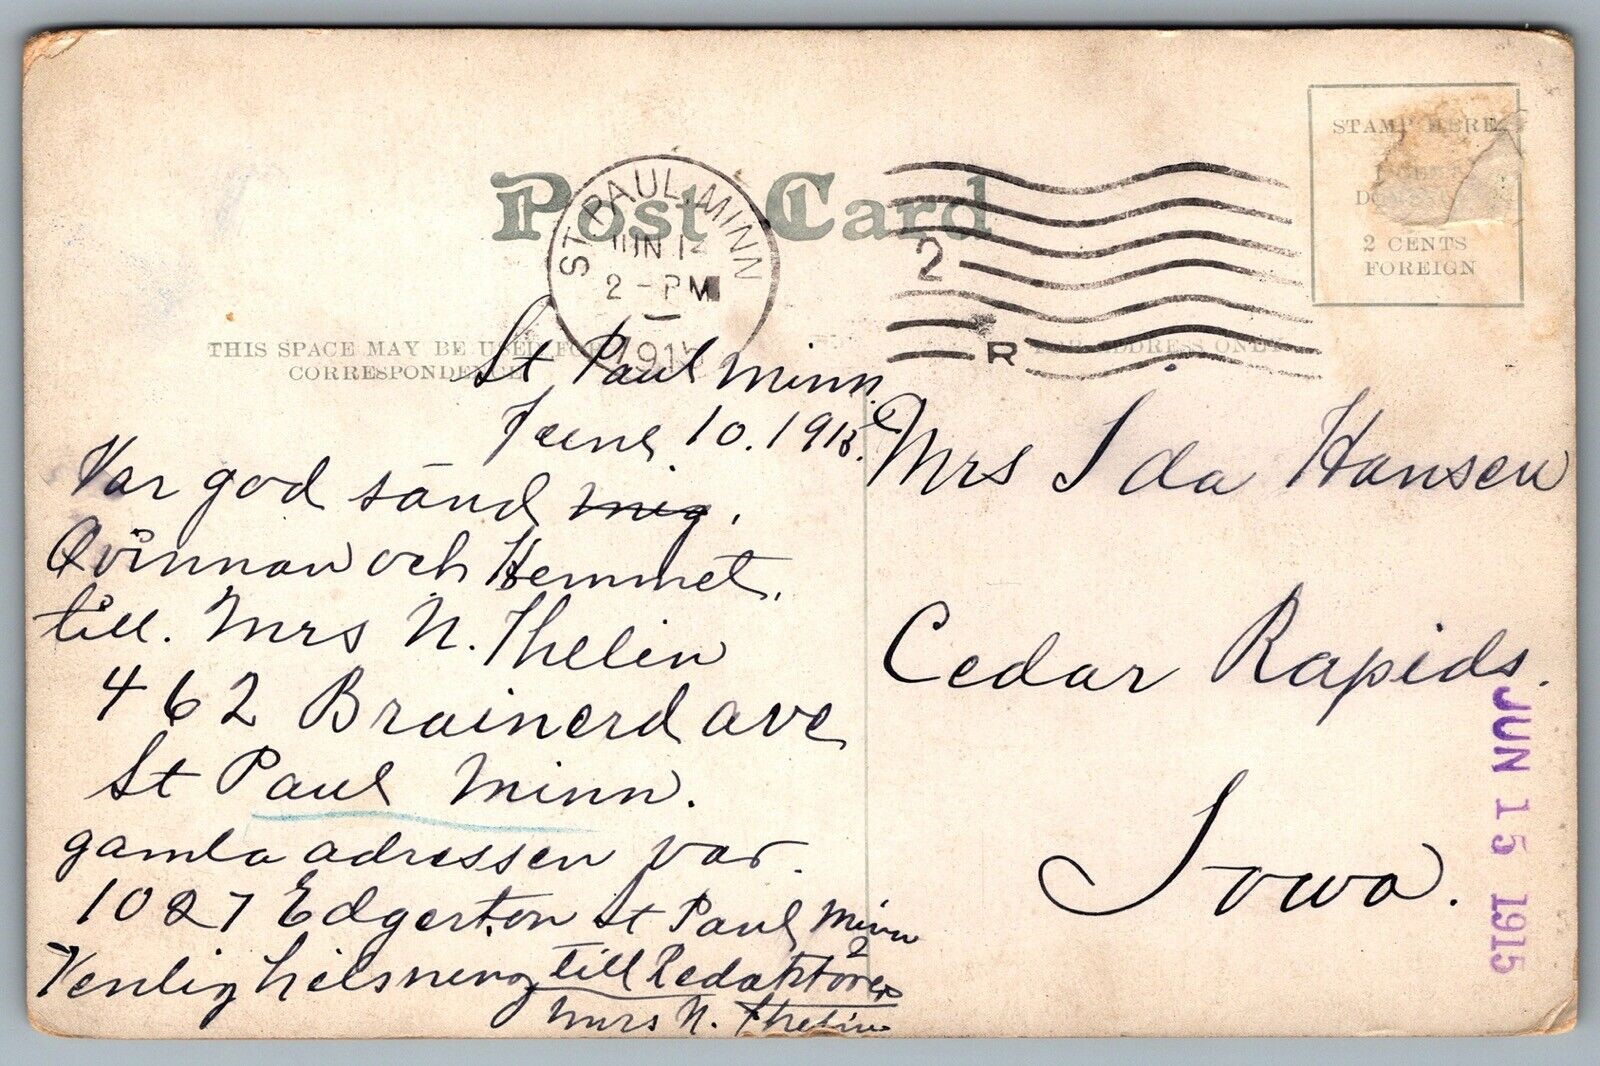 Post Card
ST. PAUL, MINN
JUN 1
2-PM
1915
2
R
STAMP HERE
2 CENTS
FOREIGN
THIS SPACE MAY BE USED FOR
CORRESPONDENCE
FOR ADDRESS ONLY
St Paul Minn.
June 10. 1915.
Var god sänd mig.
Qvinnan och Hemmet,
till. Mrs N. Thelin
462 Brainerd ave
St Paul Minn.
gamla adressen var.
1027 Edgerton St Paul Minn
Venlig helsning till Redaktören
Mrs N. Thelin
Mrs Ida Hansen
Cedar Rapids.
Iowa.
JUN 15 1915